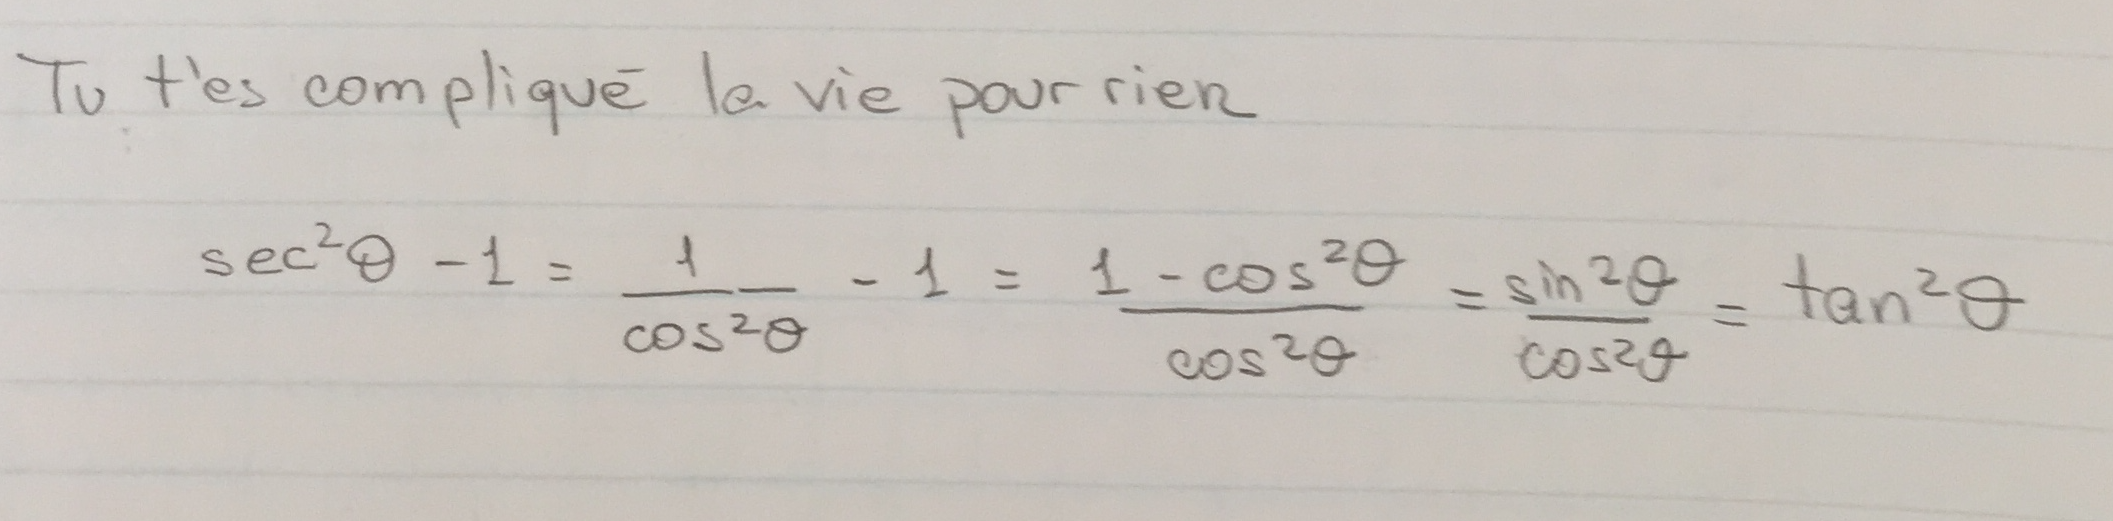 Tu t'es compliqué la vie pour rien
sec²θ - 1 = 1/cos²θ - 1 = (1 - cos²θ)/cos²θ = sin²θ/cos²θ = tan²θ